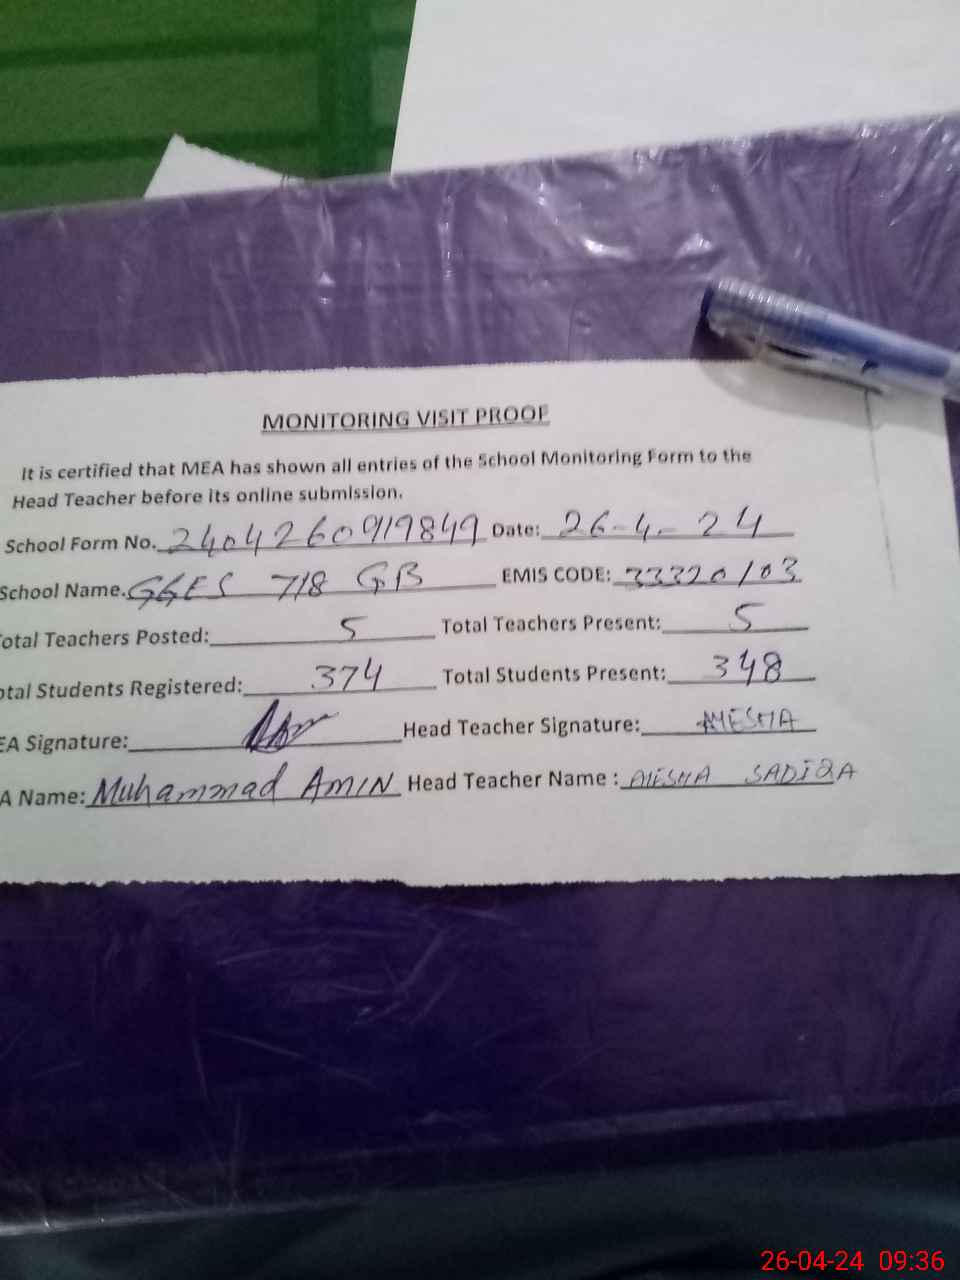 MONITORING VISIT PROOF
It is certified that MEA has shown all entries of the School Monitoring Form to the
Head Teacher before its online submission.
School Form No. 2404260919849 Date: 26-4-24
School Name. GGES 718 GB EMIS CODE: 33320103
otal Teachers Posted: 5 Total Teachers Present: 5
otal Students Registered: 374 Total Students Present: 348
EA Signature: Head Teacher Signature: AYESHA
A Name: Muhammad AMIN Head Teacher Name : AYESHA SADIQA
26-04-24 09:36